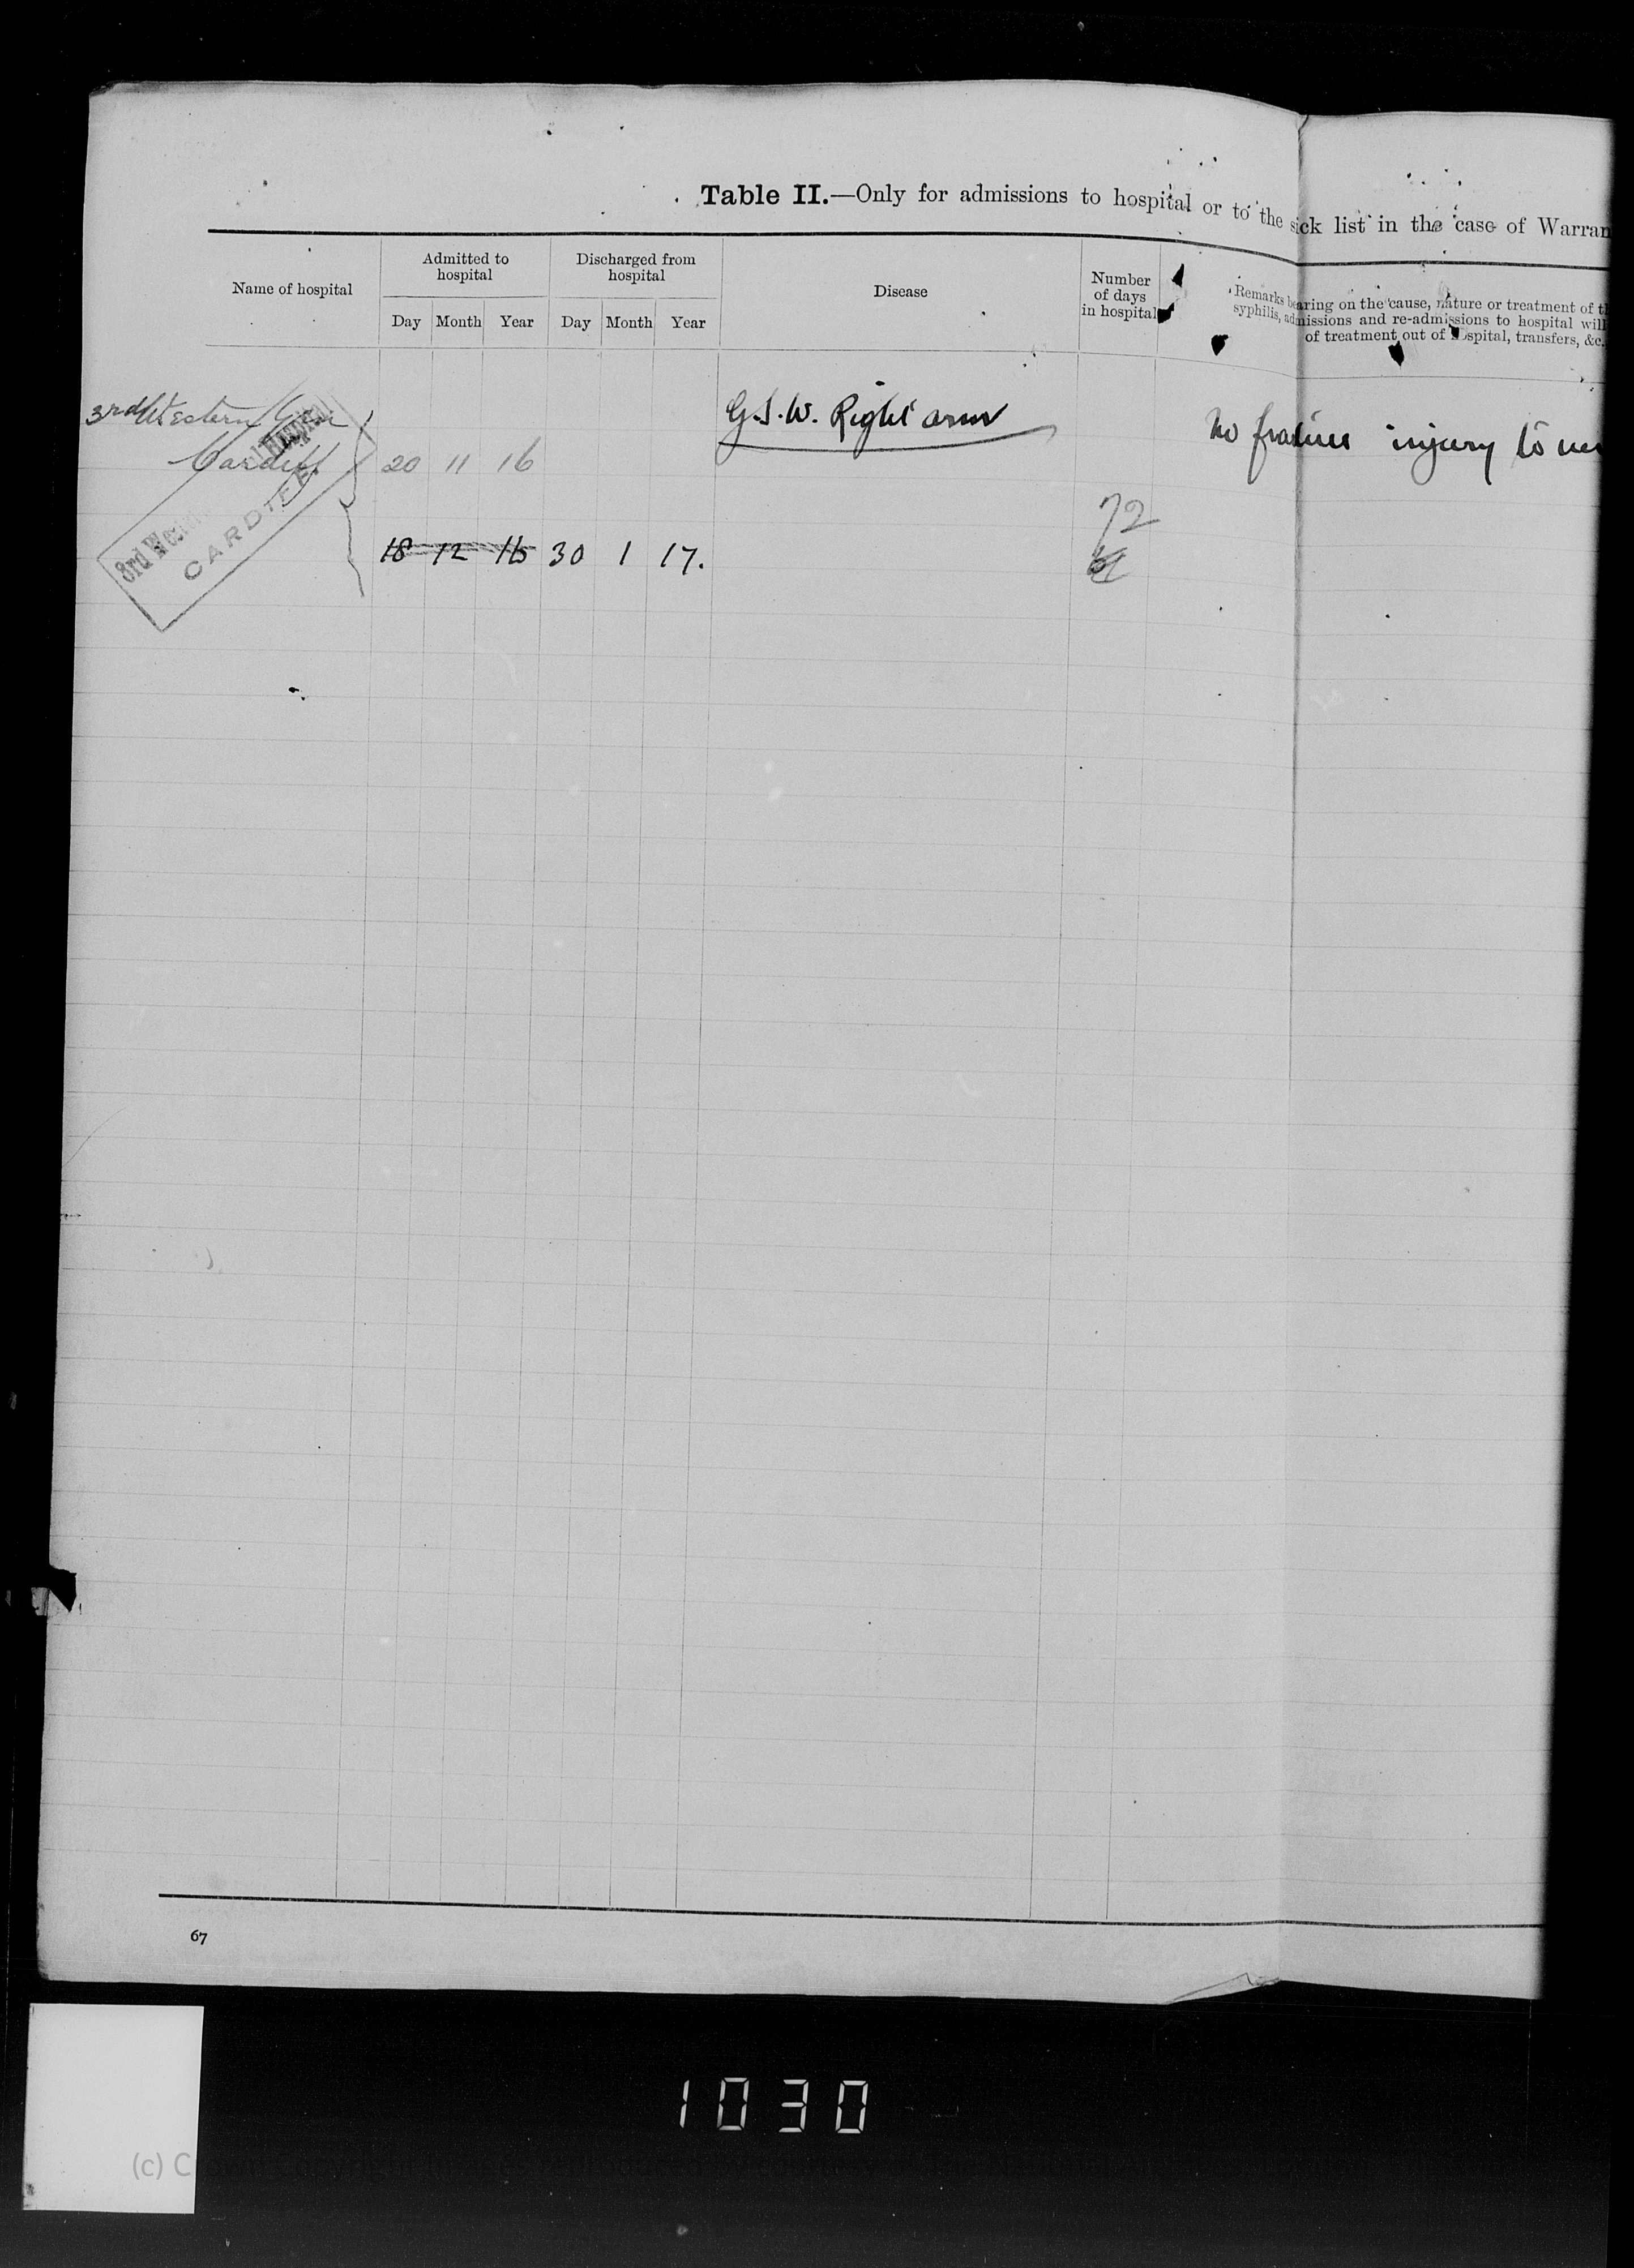 Table II.—Only for admissions to hospital or to the sick list in the case of Warran
Name of hospital
Admitted to hospital
Day Month Year
Discharged from hospital
Day Month Year
Disease
Number of days in hospital
Remarks bearing on the cause, nature or treatment of t
syphilis, admissions and re-admissions to hospital will
of treatment out of hospital, transfers, &c.
3rd Western Gen
Hospital
Cardiff
20 11 16
G.S.W. Right arm
No fracture injury to
3rd Wes
CARDIFF
18 12 16 30 1 17.
72
67
1030
(c) Crown Copyright